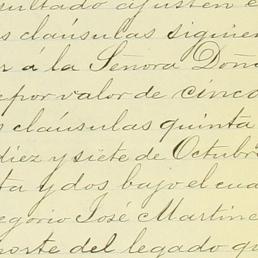 sultado ajusten e
s cláusulas siguien
r á la Señora Doña
e por valor de cinco
s cláusulas quinta
diez y siete de Octubr
ta y dos bajo el cua
egorio José Martine
porte del legado qu